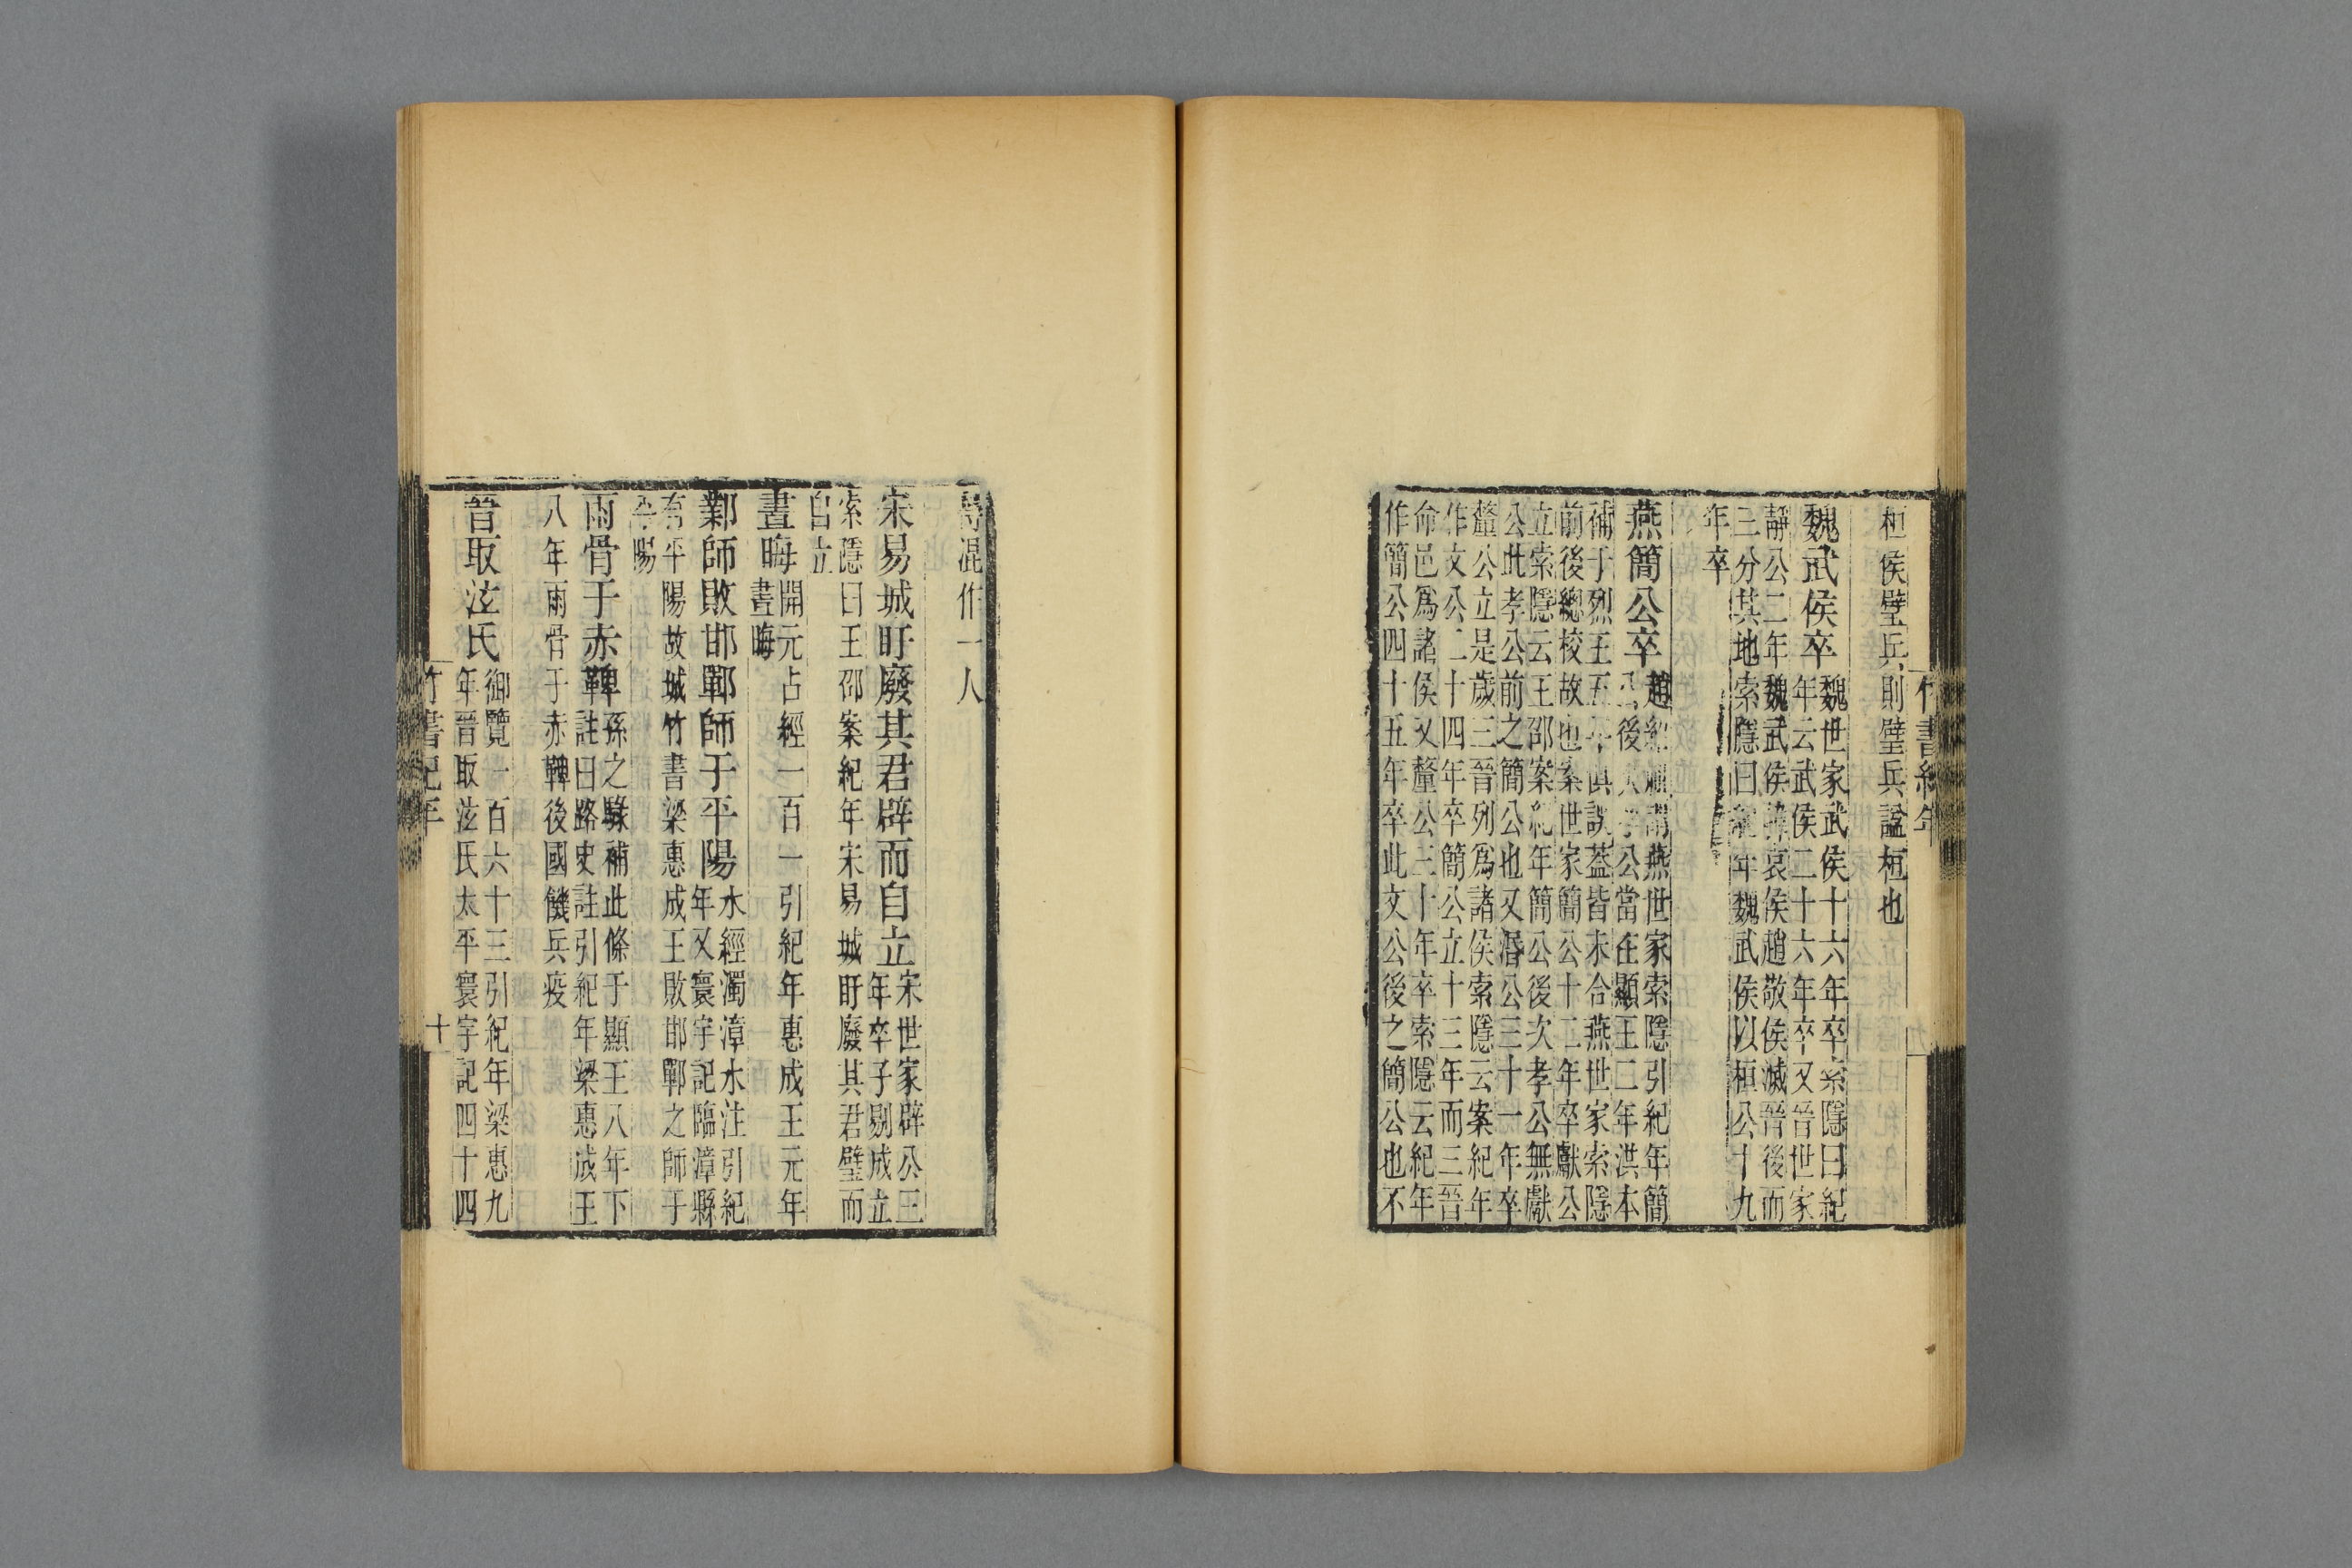 竹書紀年
桓侯璧兵則璧兵諡桓也
魏武侯卒魏世家武侯十六年卒索隱曰紀
年云武侯二十六年卒又晉世家
靜公二年魏武侯韓哀侯趙敬侯滅晉後而
三分其地索隱曰 年魏武侯以桓公十九
年卒
燕簡公卒趙紹祖 燕世家索隱引紀年簡
公後次孝公當在顯王二年洪本
補于烈王五年 誤蓋皆未合燕世家索隱
前後總校故也案世家簡公十二年卒獻公
立索隱云王邵案紀年簡公後次孝公無獻
公此孝公前之簡公也又湣公三十一年卒
釐公立是歲三晉列爲諸侯索隱云案紀年
作文公二十四年卒簡公立十三年而三晉
命邑爲諸侯又釐公三十年卒索隱云紀年
作簡公四十五年卒此文公後之簡公也不
得混作一人
宋易城盱廢其君辟而自立宋世家辟公三
年卒子剔成立
索隱曰王邵案紀年宋易城盱廢其君璧而
自立
晝晦開元占經一百一引紀年惠成王元年
晝晦
鄴師敗邯鄲師于平陽水經濁漳水注引紀
年又寰宇記臨漳縣
有平陽故城竹書梁惠成王敗邯鄲之師于
平陽
雨骨于赤鞞孫之騄補此條于顯王八年下
註曰路史註引紀年梁惠成王
八年雨骨于赤鞞後國饑兵疫
晉取泫氏御覽一百六十三引紀年梁惠九
年晉取泫氏太平寰宇記四十四
竹書紀年
十